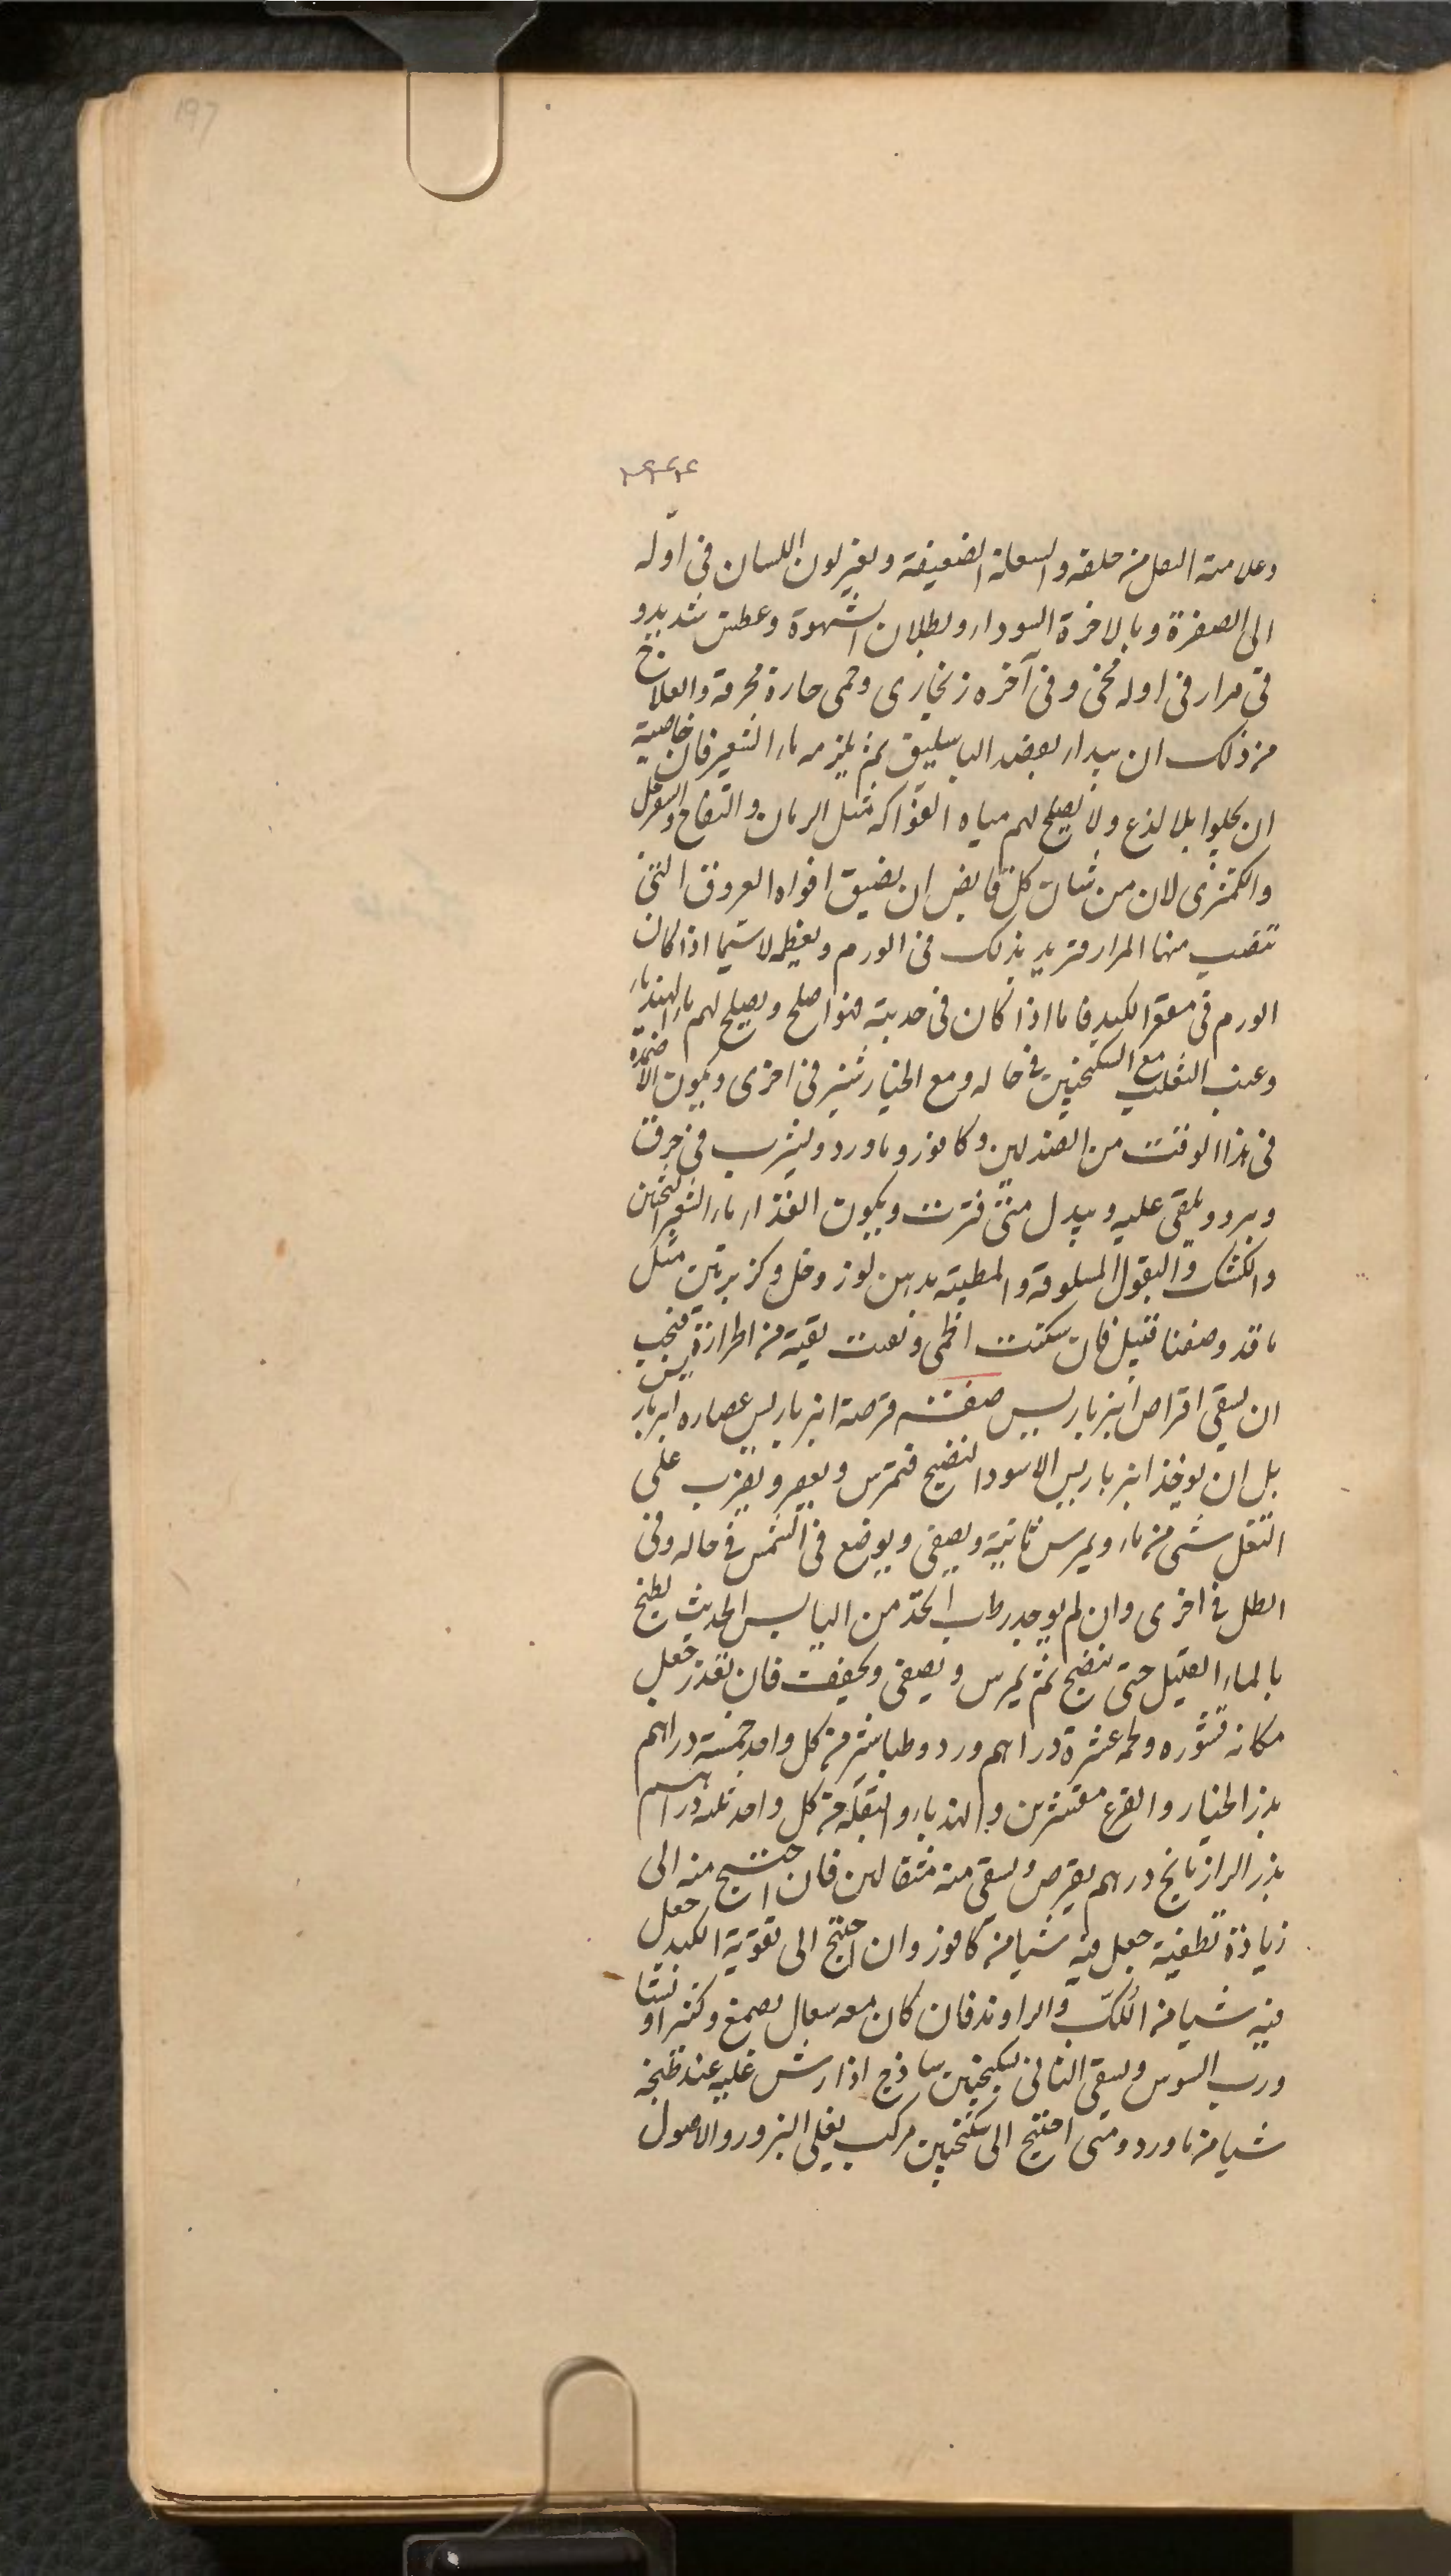 197
وعلامته الثقل من خلفه والسعلة الضعيفة وتغير لون اللسان في اوله
الى الصفرة وبالاخرة السوداء وبطلان الشهوة وعطش شديد و
قى مرار في اوله محى وفى آخره زنجارى وحمى حارة محرقة والعلاج
من ذلك ان يبداء بفصد الباسليق ثم يلزمه ماء الشعير فان خاصية
ان يجلوا بلا لذع ولا يصلح لهم مياه الفواكه مثل الرمان والتفاح والسفرجل
والكمثرى لان من شان كل قابض ان يضيق افواه العروق التى
تنصب منها المرار فتزيد بذلك فى الورم وتعظمه لا سيما اذا كان
الورم فى مقعر الكبد فاما اذا كان فى حدبته فهو اصلح ويصلح لهم ماء الهندباء
وعنب الثعلب مع السكنجبين فى حاله ومع الخيار شنبر فى اخرى ويكون الاضمدة
فى هذا الوقت من الصندلين وكافور وماورد وليشرب فى خرق
وبرد ويلقى عليه ويبدل متى فترت ويكون الغذاء ماء الشعير الثخين
والكشك والبقول المسلوقة والمطيبة بدهن لوز وخل وكزبرتين مثل
ما قد وصفنا قبيل فان سكنت الحمى وبقيت بقية من الحرارة فيجب
ان يسقى اقراص انبرباريس صفته قرصة انبرباريس عصاره انبرباريس
بل ان يوخذ انبرباريس الاسود النضيج فتمرس ويعصر ويضرب على
الثفل شى من ماء ويمرس ثانية ويصفى ويوضع فى الشمس فى حاله وفى
الظل فى اخرى وان لم يوجد رطب اتخذ من اليابس الحديث يطبخ
بالماء القليل حتى ينضج ثم يمرس ويصفى ويجفف فان تعذر جعل
مكانه قشوره ولحمه عشرة دراهم ورد وطباشير من كل واحد خمسة دراهم
بزر الخيار والقرع مقشرين والهندباء والبقلة من كل واحد ثلثه دراهم
بزر الرازيانج درهم يقرص ويسقى منه مثقالين فان احتيج منه الى
زيادة تطفية جعل فيه شيا من كافور وان احتيج الى تقوية الكبد جعل
فيه شيا من اللك والراوند فان كان معه سعال بصمغ وكثيرا ونشا
ورب السوس ويسقى الثانى بسكنجبين ساذج اذا رش عليه عند طبخه
شيا من ماورد ومتى احتيج الى سكنجبين مركب يغلى البزور والاصول